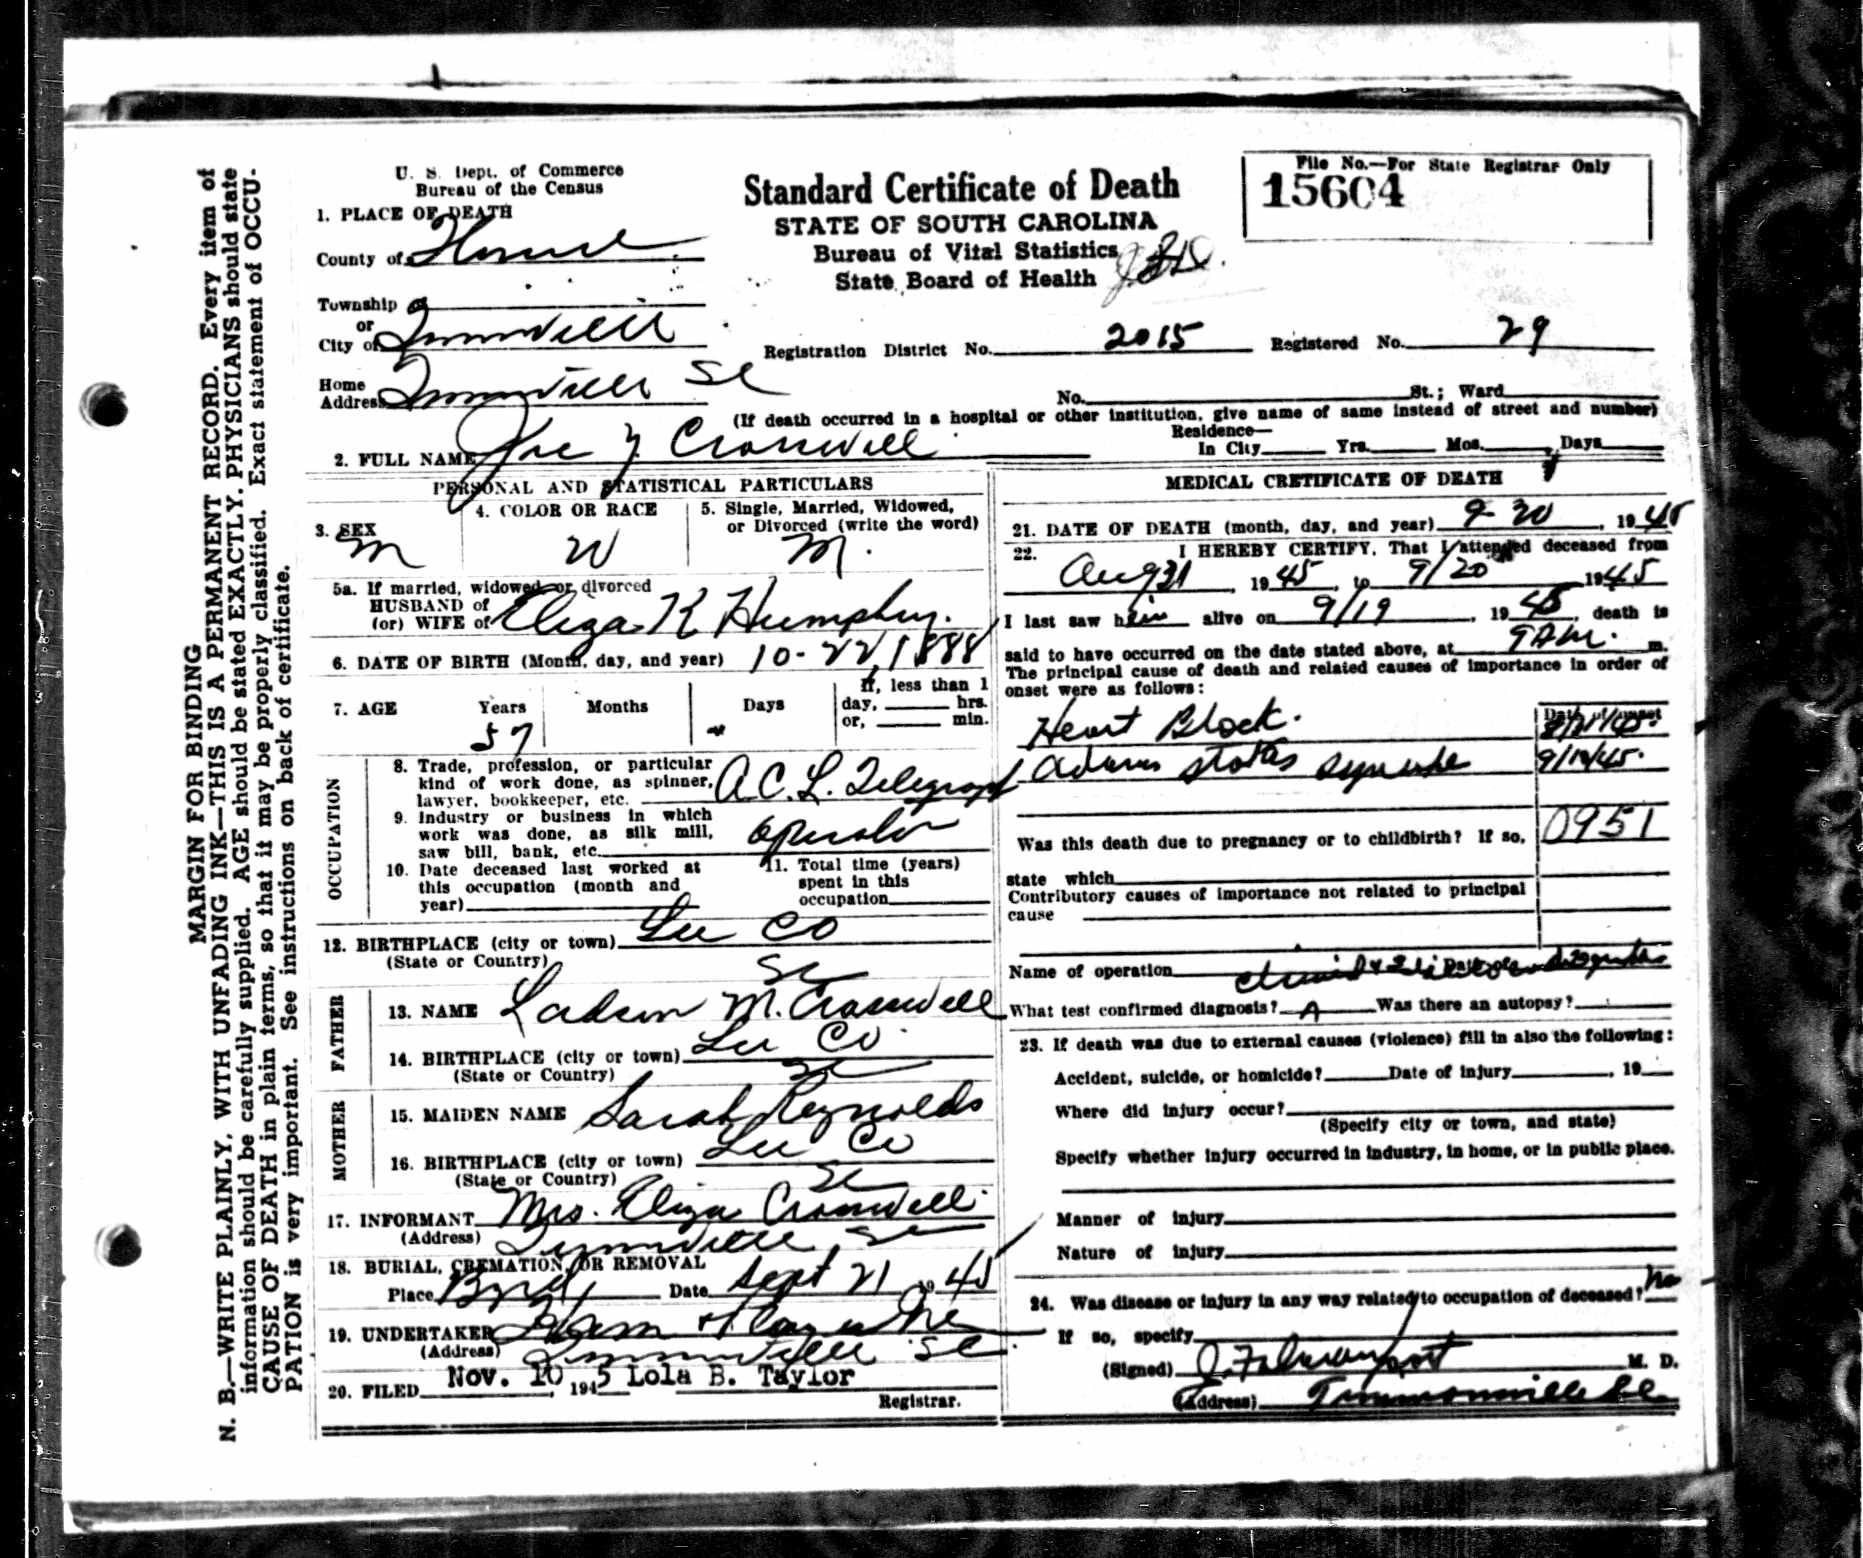 U. S. Dept. of Commerce
Bureau of the Census
Standard Certificate of Death
STATE OF SOUTH CAROLINA
Bureau of Vital Statistics
State Board of Health
File No.—For State Registrar Only
15604
1. PLACE OF DEATH
County of
Township
or
City of
Registration District No. 2015 Registered No. 29
Home
Address SC
No. St.; Ward
(If death occurred in a hospital or other institution, give name of same instead of street and number)
Residence—
In City Yrs. Mos. Days
2. FULL NAME Joe Y Cromwell
PERSONAL AND STATISTICAL PARTICULARS
3. SEX
M
4. COLOR OR RACE
W
5. Single, Married, Widowed,
or Divorced (write the word)
M.
5a. If married, widowed, or divorced
HUSBAND of
(or) WIFE of Eliza K Humphry.
6. DATE OF BIRTH (Month, day, and year) 10-22, 1888
7. AGE Years Months Days
57
If, less than 1
day, hrs.
or, min.
OCCUPATION
8. Trade, profession, or particular
kind of work done, as spinner,
lawyer, bookkeeper, etc. A C. L. Telegraph
9. Industry or business in which
work was done, as silk mill,
saw bill, bank, etc. operator
10. Date deceased last worked at
this occupation (month and
year)
11. Total time (years)
spent in this
occupation
12. BIRTHPLACE (city or town) Lee Co
(State or Country) SC
FATHER
13. NAME Ladson M. Cromwell
14. BIRTHPLACE (city or town) Lee Co
(State or Country) SC
MOTHER
15. MAIDEN NAME Sarah Reynolds
16. BIRTHPLACE (city or town) Lee Co
(State or Country) SC
17. INFORMANT Mrs. Eliza Cromwell
(Address) SC
18. BURIAL, CREMATION, OR REMOVAL
Place Byrd Date Sept 21 1945
19. UNDERTAKER
(Address) SC
20. FILED Nov. 10, 1945 Lola B. Taylor
Registrar.
MEDICAL CRETIFICATE OF DEATH
21. DATE OF DEATH (month, day, and year) 9-20, 1945
22. I HEREBY CERTIFY, That I attended deceased from
Aug 31, 1945, to 9/20 1945
I last saw him alive on 9/19, 1945, death is
said to have occurred on the date stated above, at m.
The principal cause of death and related causes of importance in order of
onset were as follows:
Date of onset
Heart Block.
Adams Stokes 
0951
Was this death due to pregnancy or to childbirth? If so,
state which
Contributory causes of importance not related to principal
cause
Name of operation Date of
What test confirmed diagnosis? Was there an autopsy?
23. If death was due to external causes (violence) fill in also the following:
Accident, suicide, or homicide? Date of injury , 19
Where did injury occur?
(Specify city or town, and state)
Specify whether injury occurred in industry, in home, or in public place.
Manner of injury
Nature of injury
24. Was disease or injury in any way related to occupation of deceased? no
If so, specify
(Signed) M. D.
(Address) Timmonsville S.C.
MARGIN FOR BINDING
N. B.—WRITE PLAINLY, WITH UNFADING INK—THIS IS A PERMANENT RECORD. Every item of
information should be carefully supplied. AGE should be stated EXACTLY. PHYSICIANS should state
CAUSE OF DEATH in plain terms, so that it may be properly classified. Exact statement of OCCU-
PATION is very important. See instructions on back of certificate.